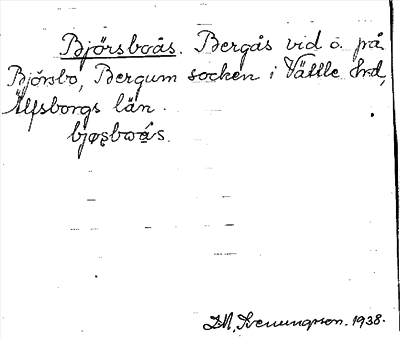 Björsboås. Bergås vid o. på
Björsbo, Bergum socken i Vättle hrd,
Älfsborgs län.
bjøʂbωás.
1938.